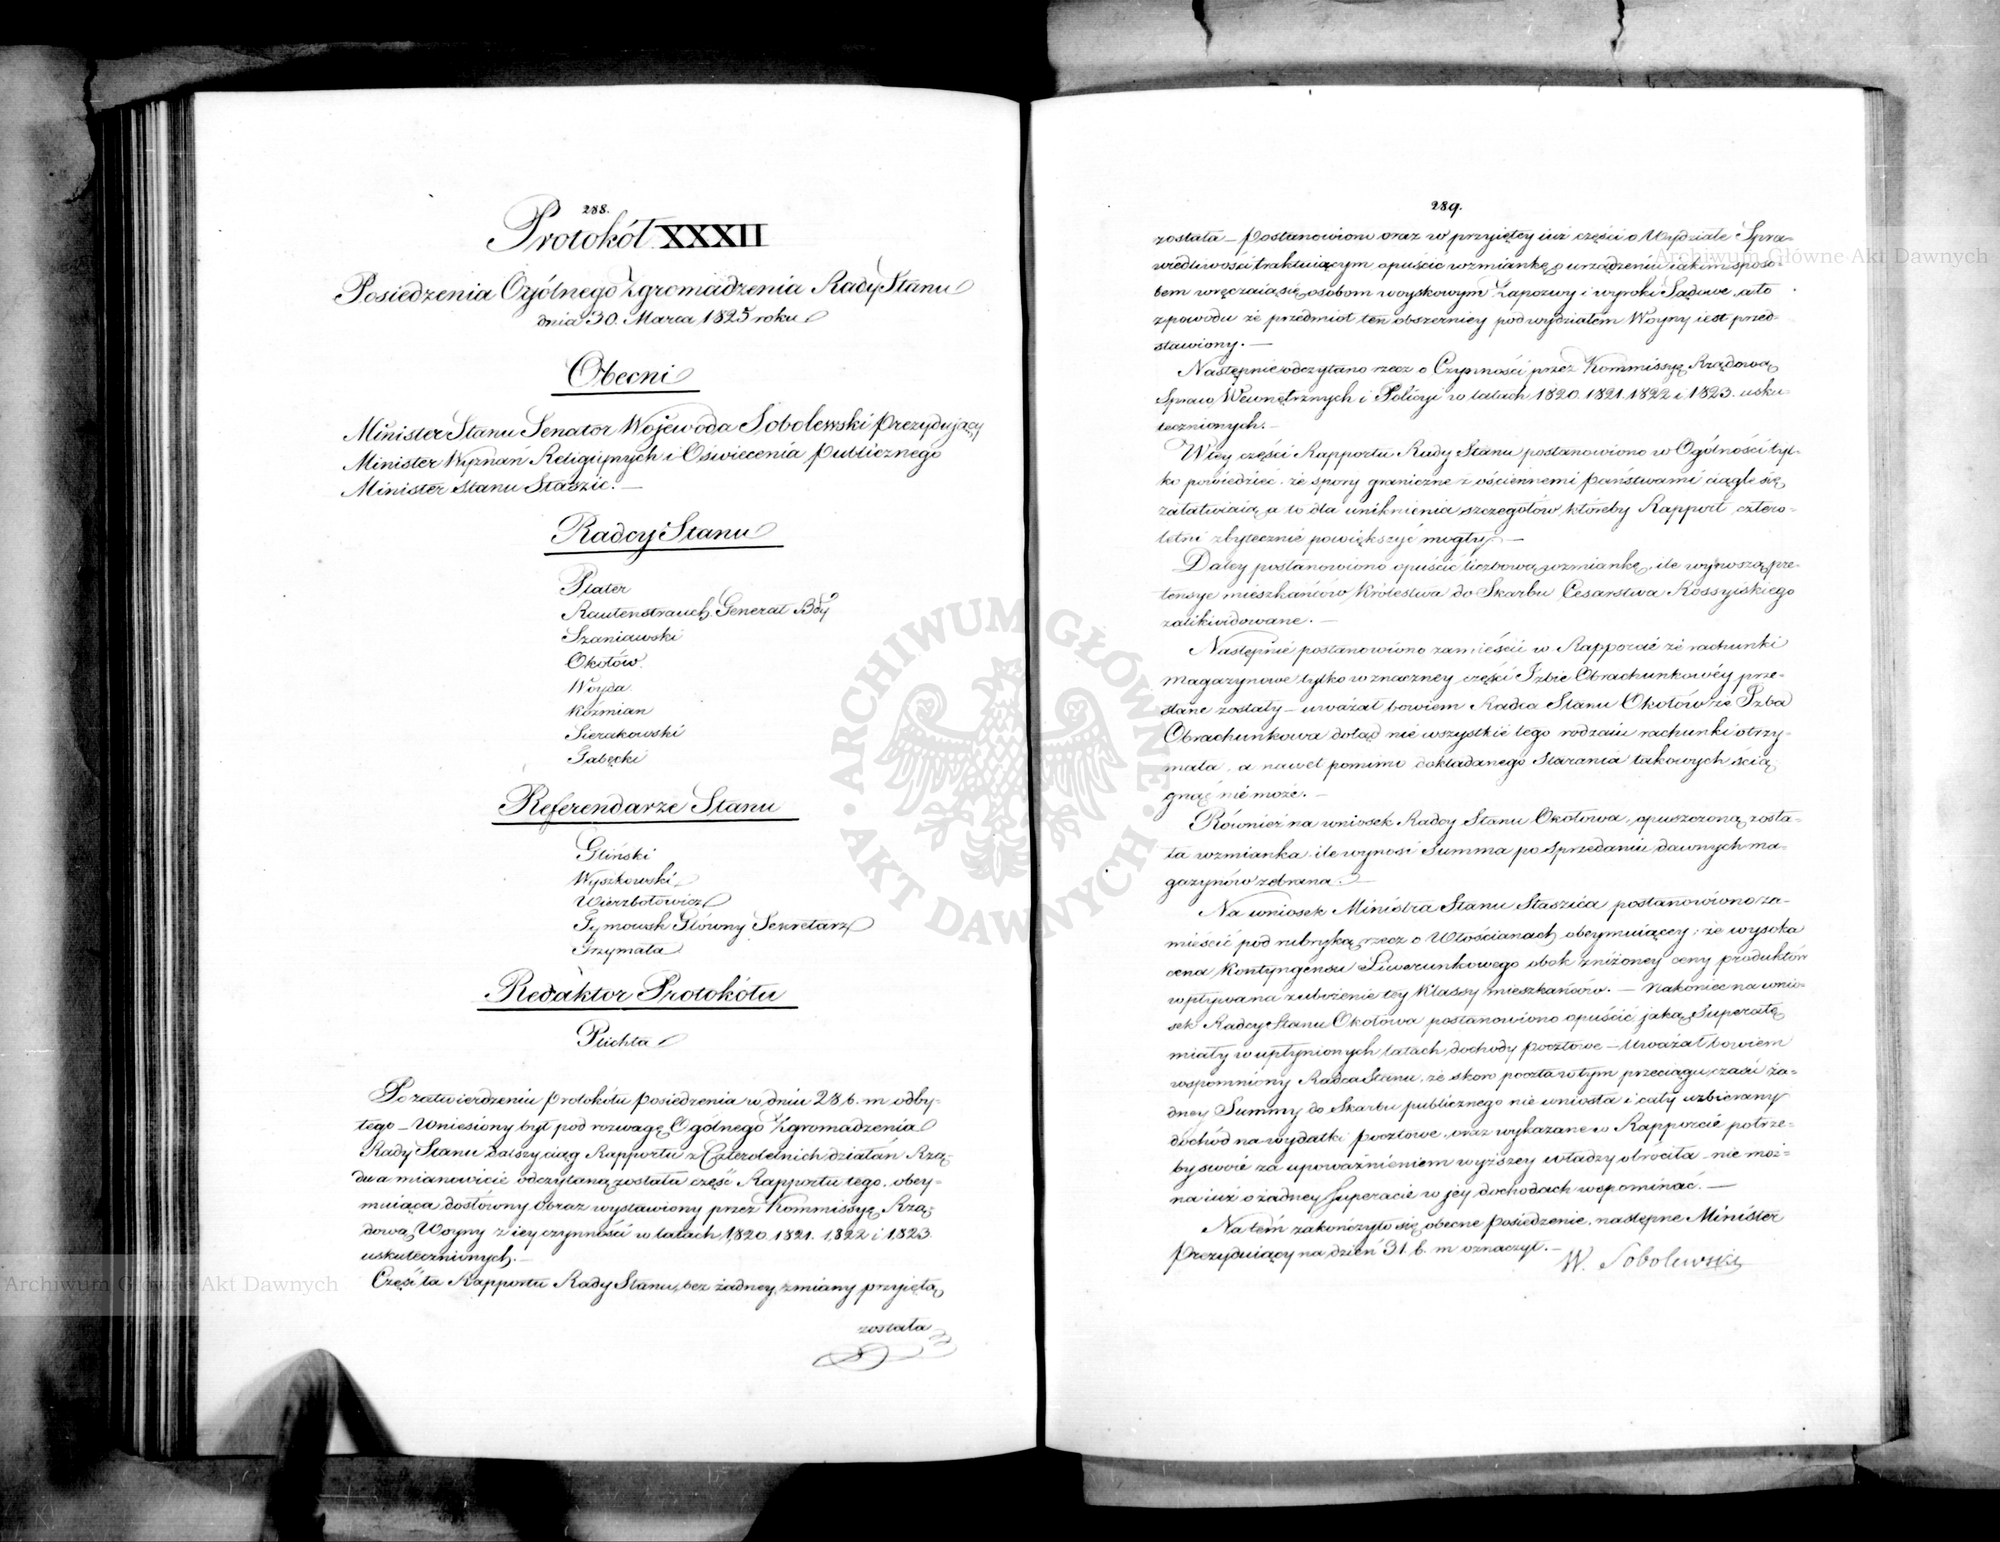 288.
Protokół XXXII
Posiedzenia Ogólnego Zgromadzenia Rady Stanu
dnia 30. Marca 1825 roku
Obecni
Minister Stanu Senator Wojewoda Sobolewski Prezydujący
Minister Wyznan Religiynych i Oświecenia Publicznego
Minister Stanu Staszic. —
Radcy Stanu
Plater
Rautenstrauch Generał Bdy
Szaniawski
Okołów
Woyda
Koźmian
Sierakowski
Gałęcki
Referendarze Stanu
Gliński
Wyszkowski
Wierzbołowicz
Tymowsk Główny Sekretarz
Grzymała
Redaktor Protokółu
Plichta
Po zatwierdzeniu Protokółu Posiedzenia w dniu 28 b. m. odby-
tego — Wniesiony był pod rozwagę Ogólnego Zgromadzenia
Rady Stanu Dalszy ciąg Rapportu z Czteroletnich działań Rzą-
du a mianowicie odczytaną została część Rapportu tego, obey-
muiąca dosłowny obraz wystawiony przez Kommissyę Rzą-
dową Woyny z iey czynności w latach 1820. 1821. 1822 i 1823.
uskutecznionych. —
Część ta Rapportu Rady Stanu, bez żadney zmiany przyiętą
została
289.
została — Postanowiono oraz w przyiętey iuż części o Wydziale Spra-
wiedliwości traktuiącym opuścić wzmiankę o urządzeniu iakim sposo-
bem wręczaią się osobom woyskowym Zapozwy i wyroki Sądowe, a to
z powodu że przedmiot ten obszerniey pod wydziałem Woyny iest przed-
stawiony. —
Następnie odczytano rzecz o Czynności przez Kommissyę Rządową
Spraw Wewnętrznych i Policyi w latach 1820. 1821. 1822 i 1823. usku-
tecznionych. —
W tey części Rapportu Rady Stanu postanowiono w Ogólności tyl-
ko powiedzieć, że spory graniczne z ościennemi Państwami ciągle się
załatwiaią, a to dla uniknienia szczegołów któreby Rapport cztero-
letni zbytecznie powiększyć mogły. —
Daley postanowiono opuścić liczbową wzmiankę, ile wynoszą pre-
tensye mieszkańców Królestwa do Skarbu Cesarstwa Rossyiskiego
zalikwidowane. —
Następnie postanowiono zamieścić w Rapporcie że rachunki
Magazynowe tylko w znaczney części Izbie Obrachunkowéy prze-
słane zostały — uważał bowiem Radca Stanu Okołów że Izba
Obrachunkowa dotąd nie wszystkie tego rodzaiu rachunki otrzy-
mała, a nawet pomimo dokładanego Starania takowych ścią-
gnąć nie może. —
Również na wniosek Radcy Stanu Okołowa, opuszczoną zosta-
ła wzmianka ile wynosi Summa po sprzedaniu dawnych ma-
gazynów zebrana. —
Na wniosek Ministra Stanu Staszica postanowiono za-
mieścić pod rubryką rzecz o Włościanach obeymuiącey: że wysoka
cena Kontyngensu Liwerunkowego obok zniżoney ceny produktów
wpływa na zubożenie tey Klassy mieszkańców. — Nakoniec na wnio-
sek Radcy Stanu Okołowa postanowiono opuścić jaką Superatę
miały w upłynionych latach, dochody pocztowe — Uważał bowiem
wspomniony Radca Stanu, że skoro poczta w tym przeciągu czasu ża-
dney Summy do Skarbu publicznego nie wniosła i cały uzbierany
dochód na wydatki pocztowe, oraz wykazane w Rapporcie potrze-
by swoie za upoważnieniem wyższey władzy obróciła — nie moż-
na iuż o żadney Superacie w jey dochodach wspominać. —
Na tém zakończyło się obecne posiedzenie, następne Minister
Prezyduiący na dzień 31. b. m. oznaczył. —
W. Sobolewski
Archiwum Główne Akt Dawnych
Archiwum Główne Akt Dawnych
ARCHIWUM GŁÓWNE AKT DAWNYCH